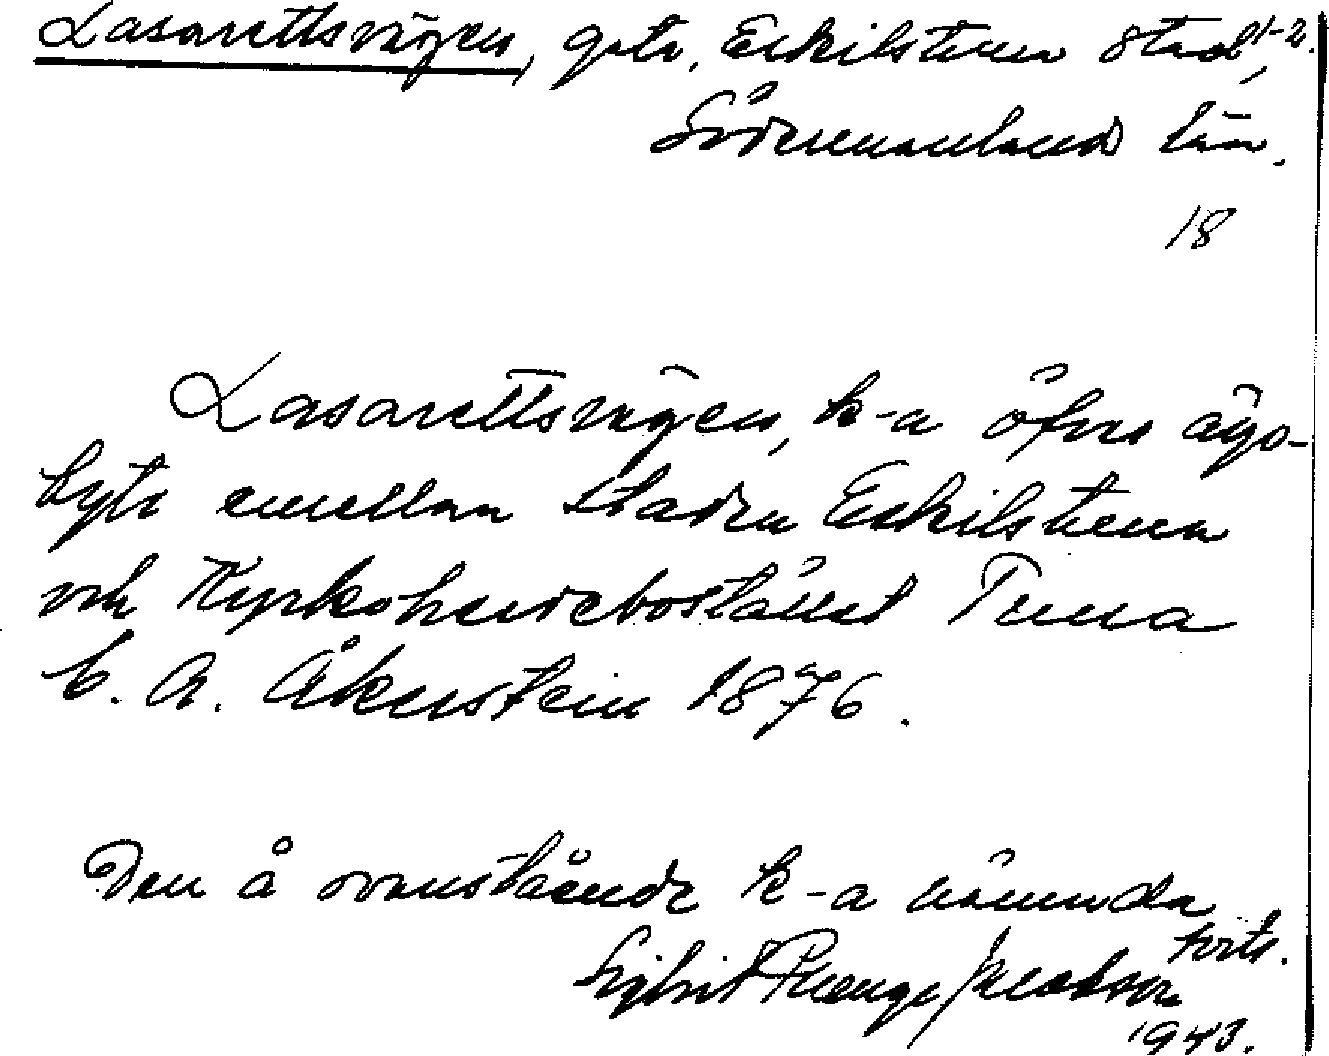 Lasarettsvägen, gata, Eskilstuna stad, 1-2.
Södermanlands län.
18
Lasarettsvägen, k-a öfver ägo-
byte emellan staden Eskilstuna
och Kyrkoherdebostället Tuna
C. A. Åkerstein 1876.
Den å ovanstående k-a nämnda
forts.
Sigbrit Plænge Jacobson
1943.